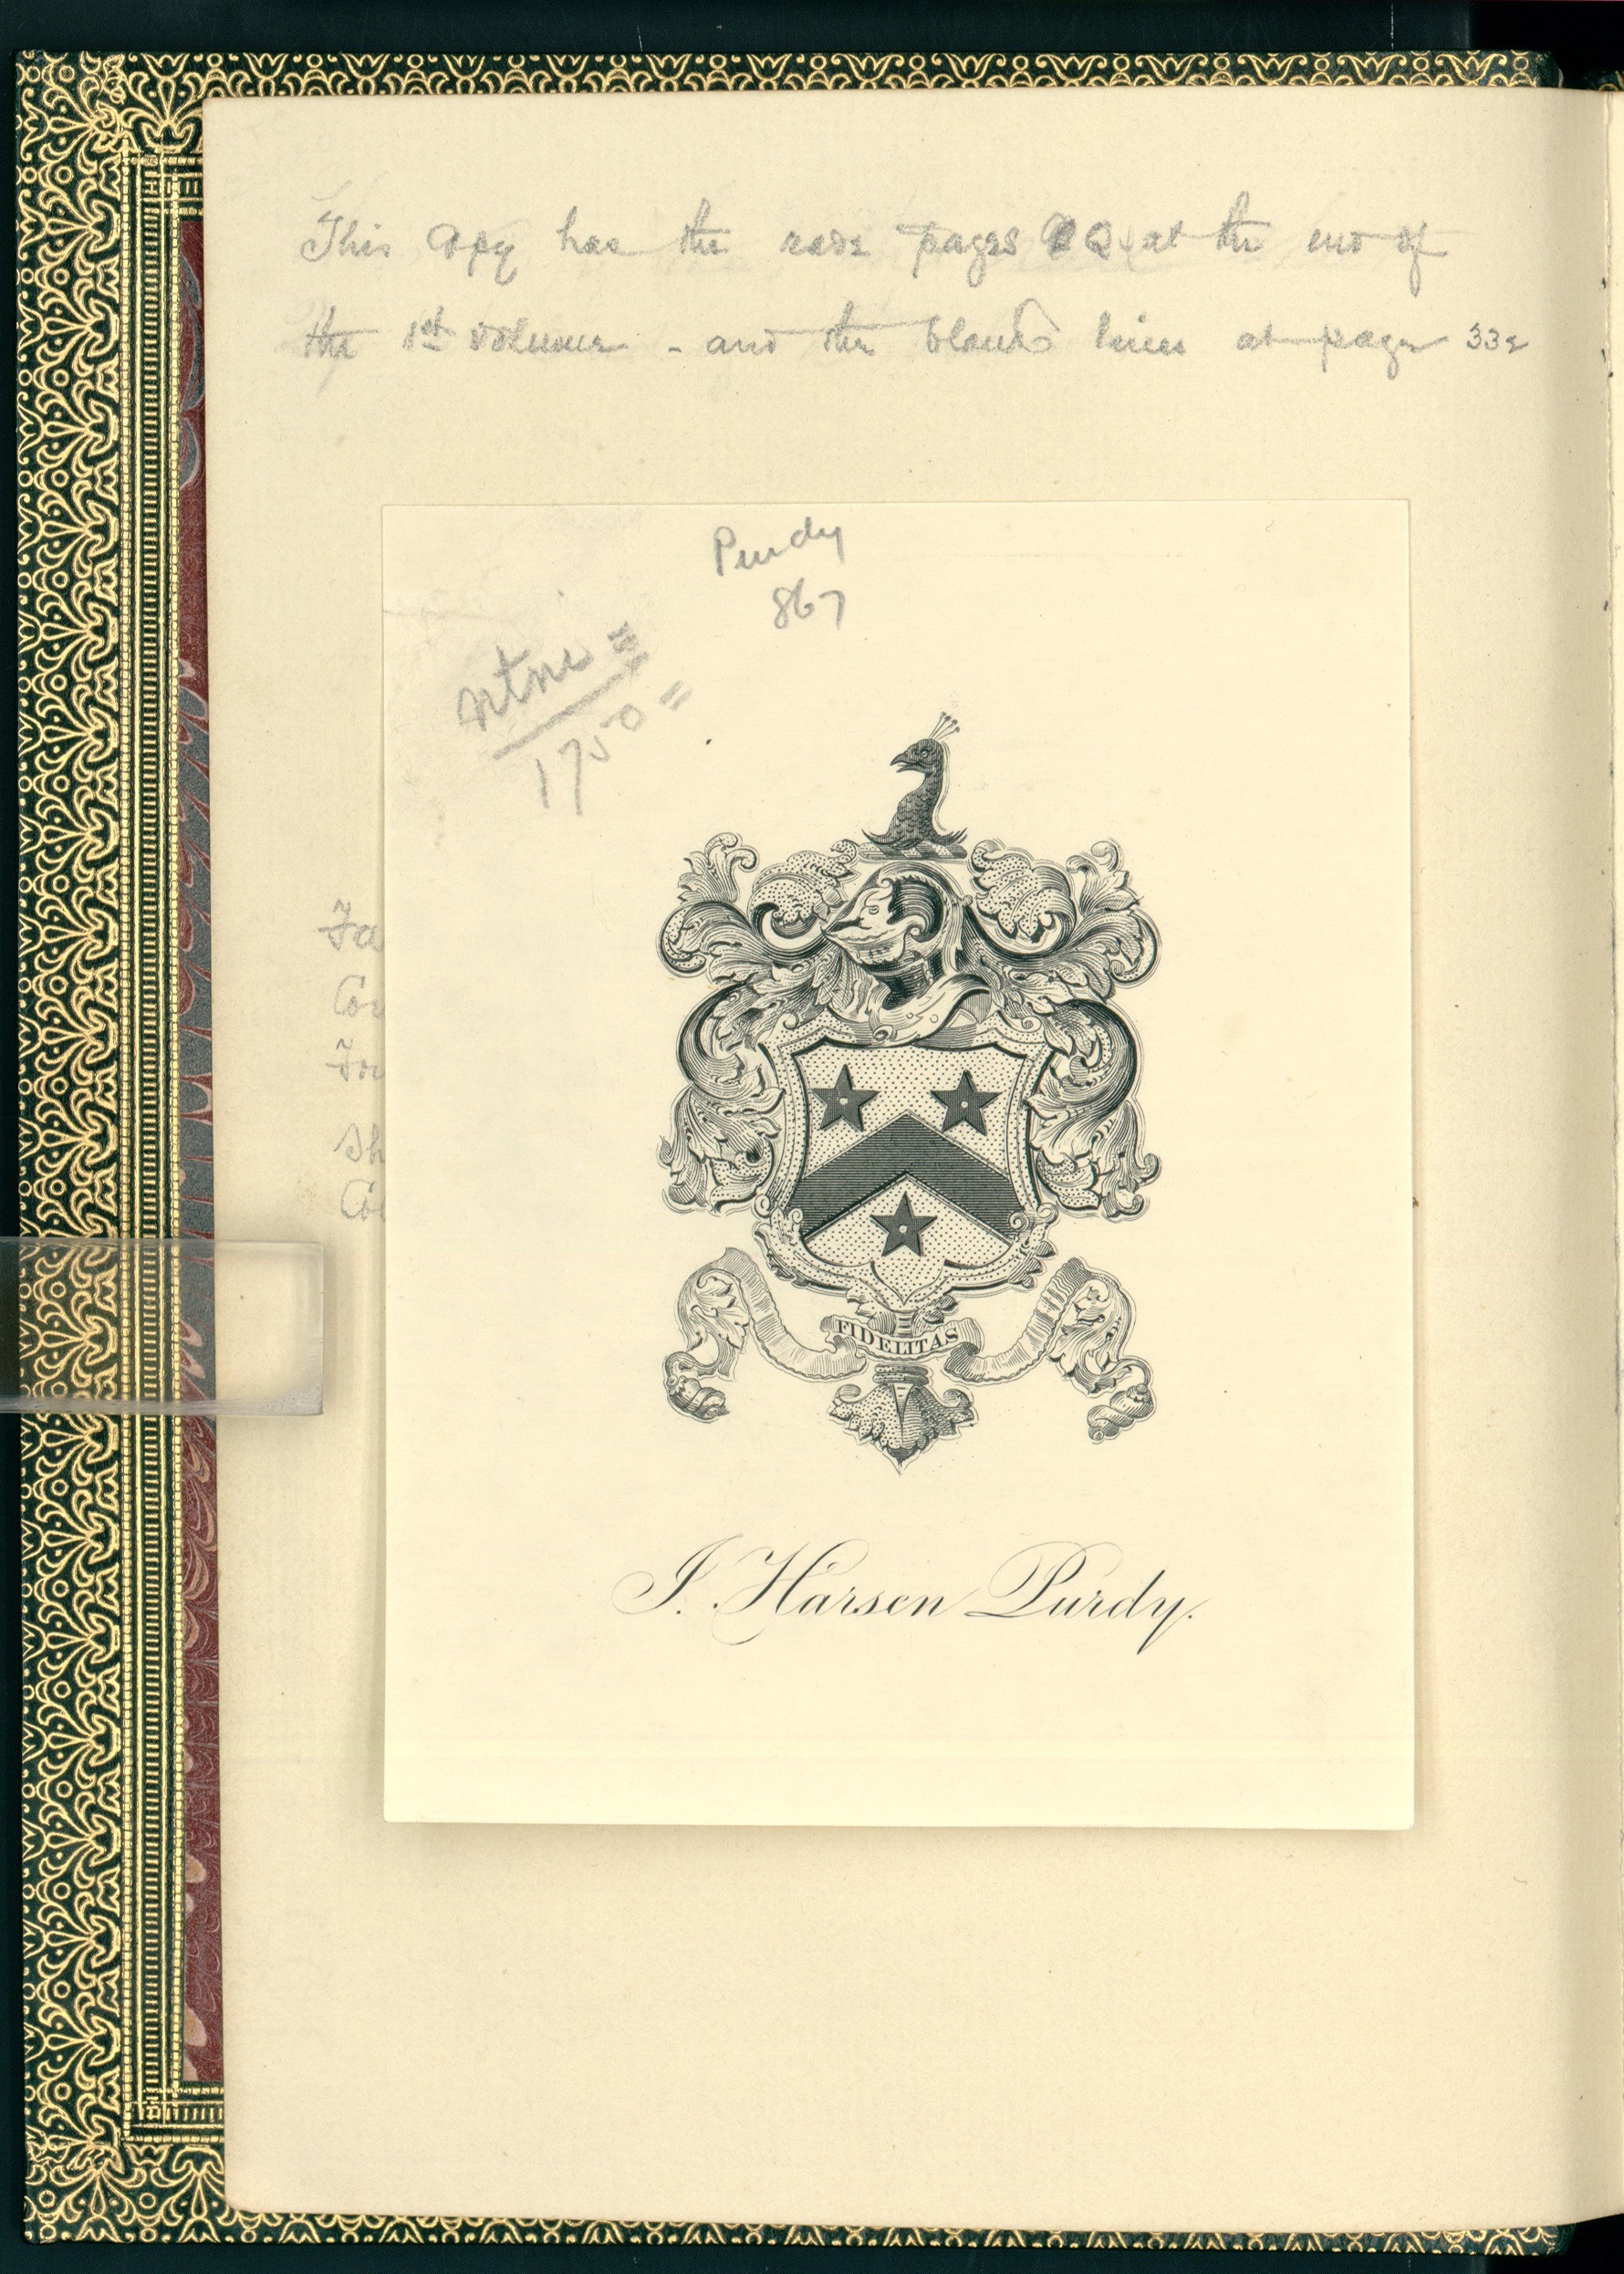 This Copy has the rare pages Q at the end of
the 1st volume - and the blank lines at page 332
Purdy
867
ntne =
1750 =
Fa
Con
Fou
Sh
Co
FIDELITAS
J. Harsen Purdy.